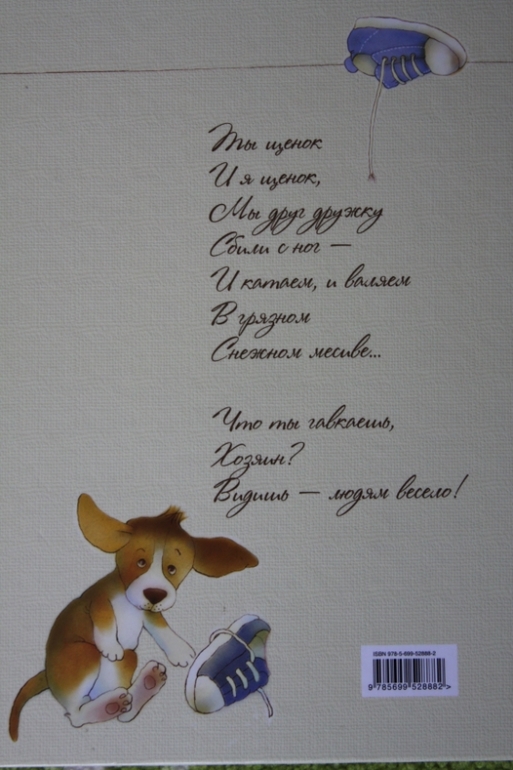 Ты щенок
И я щенок,
Мы друг дружку
Сбили с ног —
И катаем, и валяем
В грязном
Снежном месиве...
Что ты гавкаешь,
Хозяин?
Видишь — людям весело!
ISBN 978-5-699-52888-2
9 785699 528882 >